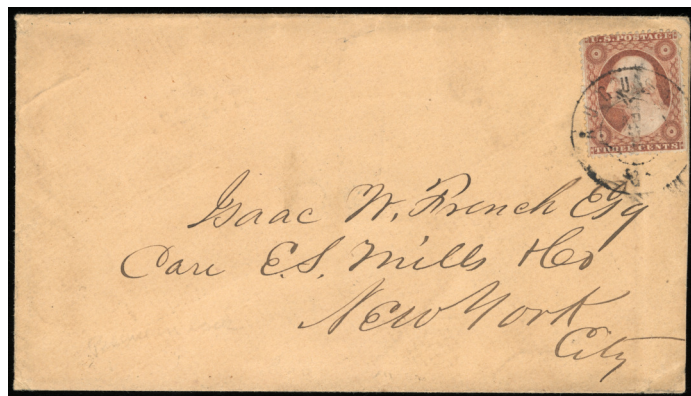 U.S. POSTAGE
THREE CENTS
Isaac W. French Esq
Care E.S. Mills & Co
New York
City